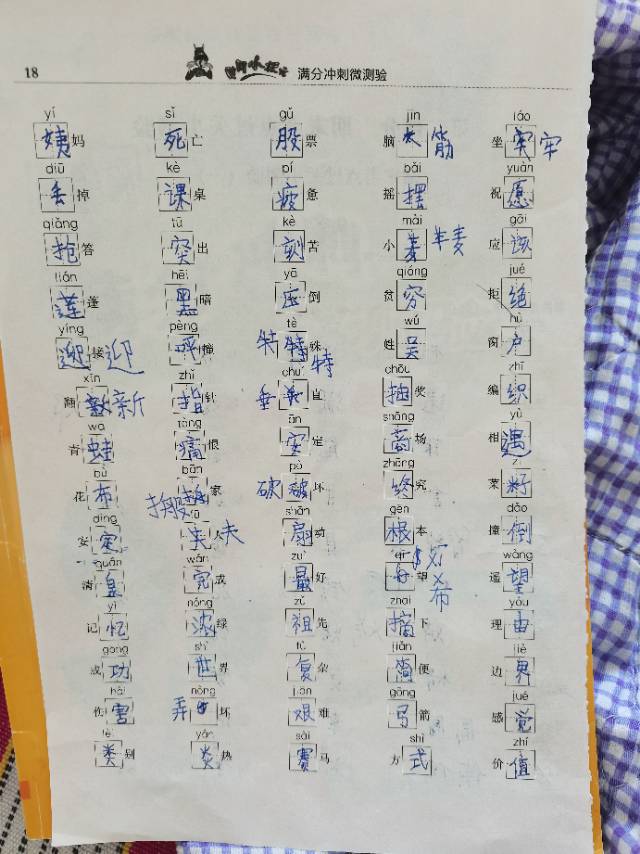 18 满分冲刺微测验
yí sǐ gǔ jīn láo
姨妈 死亡 股票 脑 筋 坐 牢
diū kè pí bǎi yuàn
丢掉 课桌 疲惫 摇摆 祝愿
qiǎng tū kè mài gāi
抢答 突出 刻苦 小麦 麦 应该
lián hēi yā qióng jué
莲蓬 黑暗 压倒 贫穷 拒绝
yíng pèng tè wú hù
迎接 迎 呯撞 特特殊 特 姓吴 窗户
xīn zhǐ chuí chōu zhī
翻新新 指针 垂直 抽奖 编织
wā tòng ān shāng yù
青蛙 痛恨 安定 商场 相遇
bù bān pò zhōng
花布 搬 家 破破坏 终究 菜籽
dìng fū shān gēn dǎo
安定 夫人夫 扇动 根本 撞倒
guān wán zuì wàng
清 完成 最好 望 希 遥望
yì nóng zǔ zhāi yóu
记忆 浓绿 祖先 摘下 理由
gōng shì fù jiǎn jiè
成功 世界 复杂 简便 边界
hài nòng jiān gōng jué
伤害 弄 坏 艰难 弓箭 感觉
lèi yán sài shì zhí
类别 炎热 赛马 方式 价值